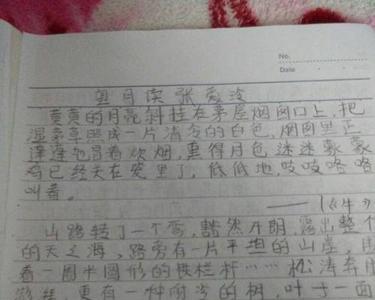 No.
Date
望月读张爱玲
黄黄的月亮斜挂在茅屋烟囱口上,把
湿茅草照成一片清冷的白色,烟囱里正
蓬蓬地冒着炊烟,熏得月色迷迷蒙蒙
鸡已经关在笼里了,低低地,吱吱咯咯
叫着。
——《牛》
山路转了一个弯,豁然开朗,露出整个
的天与海,路旁有一片平坦的山崖,围
着一圈半圆形的铁栏杆……松涛奔
更有一种
的树,叶十一面